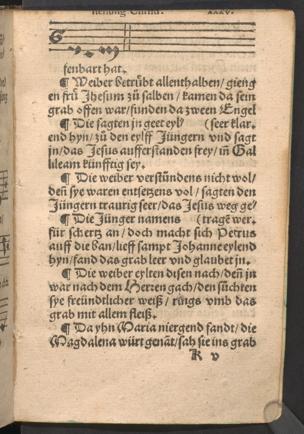 stehung Christi. xxxv.
senbart hat.
¶ Weiber betrübt allenthalben / gieng
en frü Jhesum zů salben / kamen da sein
grab offen war / funden da zween Engel
¶ Die sagten in geet eyl (seer klar.
end hyn / zů den eylff Jüngern vnd sagt
jn / das Jesus aufferstanden sey / in Gal
lileam künfftig sey.
¶ Die weiber verstůndens nicht wol /
deñ sye waren entsetzens vol / sagten den
Jüngern traurig seer / das Jesus weg ge
¶ Die Jünger namens (tragẽ wer.
für schertz an / doch macht sich Petrus
auff die ban / lieff sampt Johanne eylend
hyn / fand das grab leer vnd glaubet jn.
¶ Die weiber eylten disen nach / deñ jn
war nach dem Herren gach / den sůchten
sye freündtlicher weiß / rings vmb das
grab mit allem fleiß.
¶ Da yhn Maria niergend fandt / die
Magdalena würt genañt / sah sie ins grab
K v